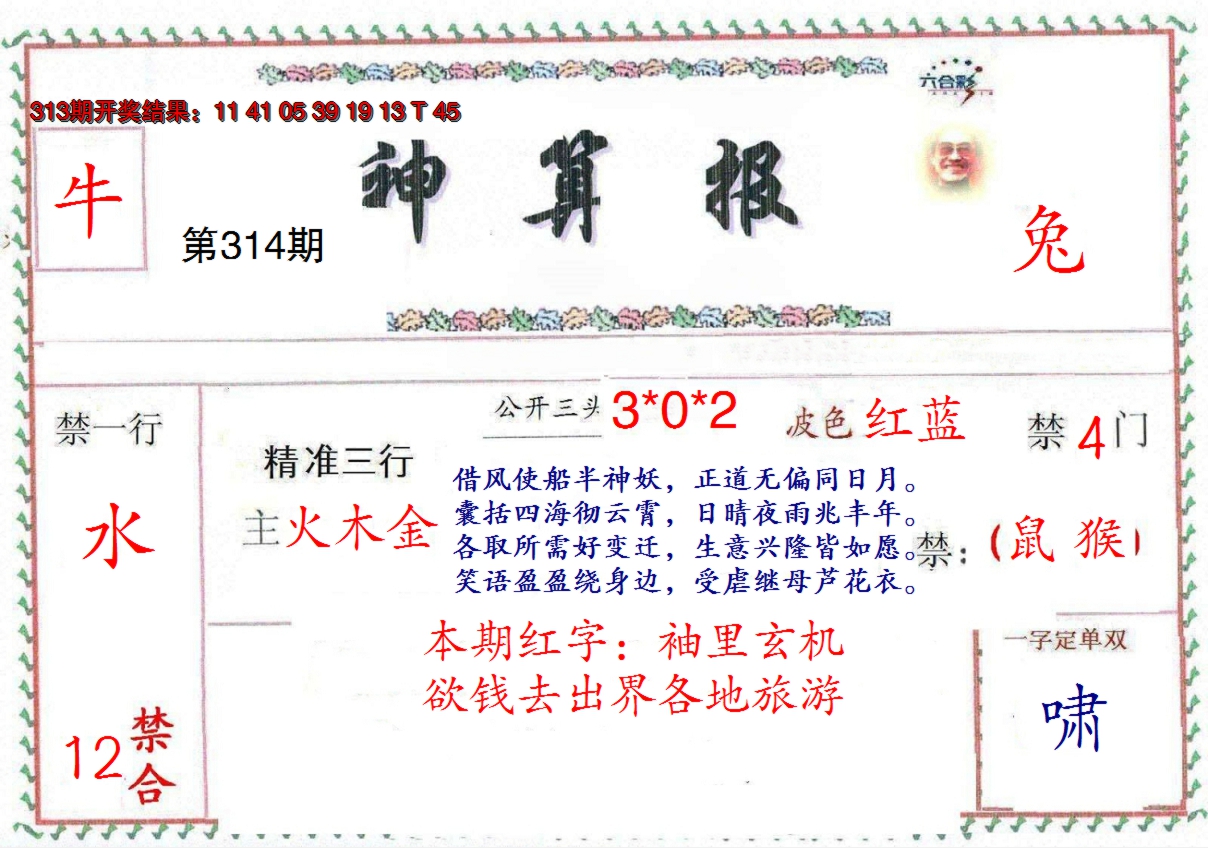 六合彩
313期开奖结果：11 41 05 39 19 13 T 45
神算报
牛
第314期
兔
禁一行
水
12禁合
精准三行
主火木金
公开三头 3*0*2
波色红蓝
禁4门
借风使船半神妖，正道无偏同日月。
囊括四海彻云霄，日晴夜雨兆丰年。
各取所需好变迁，生意兴隆皆如愿。
笑语盈盈绕身边，受虐继母芦花衣。
禁：（鼠 猴）
本期红字：袖里玄机
欲钱去出界各地旅游
一字定单双
啸